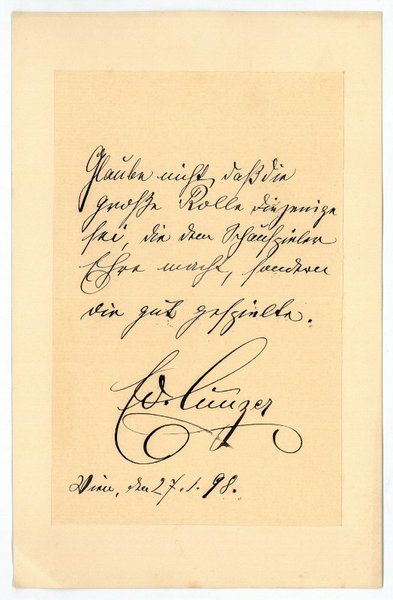 Glaube nicht, daß die
große Rolle diejenige
sei, die dem Schauspieler
Ehre macht, sondern
die gut gespielte.
Ed.
Wien, den 27.1.98.